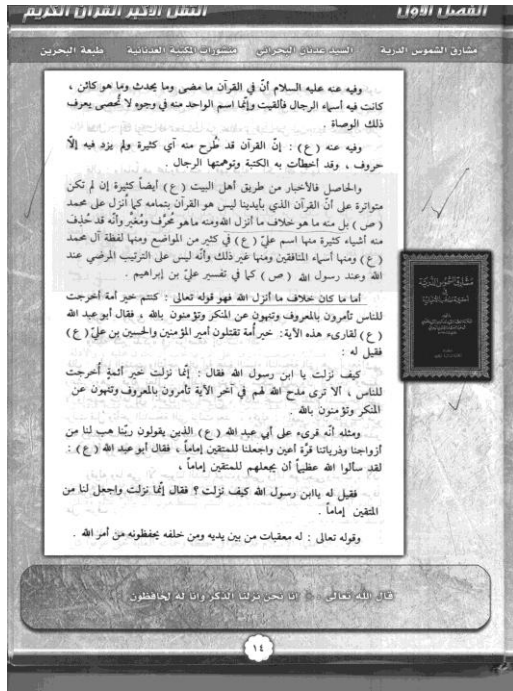 الفصل الاول
الثقل الأكبر القرآن الكريم
مشارق الشموس الدرية
السيد عدنان البحراني
منشورات المكتبة العدنانية
طبعة البحرين
وفيه عنه عليه السلام أنّ في القرآن ما مضى وما يحدث وما هو كائن ،
كانت فيه أسماء الرجال فألقيت وإنّما اسم الواحد منه في وجوه لا تُحصى يعرف
ذلك الوصاة
وفيه عنه ( ع ) : إنّ القرآن قد طُرح منه آي كثيرة ولم يزد فيه إلّا
حروف ، وقد أخطأت به الكتبة وتوهمتها الرجال .
والحاصل فالأخبار من طريق أهل البيت ( ع ) أيضاً كثيرة إن لم تكن
متواترة على أنّ القرآن الذي بأيدينا ليس هو القرآن بتمامه كما أُنزل على محمد
( ص ) بل منه ما هو خلاف ما أنزل الله ومنه ما هو محُرَّف ومُغيَّر وأنّه قد حُذِف
منه أشياء كثيرة منها اسم عليّ ( ع ) في كثير من المواضع ومنها لفظة آل محمد
( ع ) ومنها أسماء المنافقين ومنها غير ذلك وأنّه ليس على الترتيب المرضي عند
الله وعند رسول الله ( ص ) كما في تفسير عليّ بن إبراهيم .
أما ما كان خلاف ما أنزل الله فهو قوله تعالى : كنتم خير أمة أخرجت
للناس تأمرون بالمعروف وتنهون عن المنكر وتؤمنون بالله ، فقال أبو عبد الله
( ع ) لقارىء هذه الآية : خير أُمة تقتلون أمير المؤمنين والحسين بن عليّ ( ع )
فقيل له :
كيف نزلت يا ابن رسول الله فقال : إنّما نزلت خير أئمةٍ أُخرجت
للناس ، ألا ترى مدح الله لهم في آخر الآية تأمرون بالمعروف وتنهون عن
المنكر وتؤمنون بالله .
ومثله أنّه قرىء على أبي عبد الله ( ع ) الذين يقولون ربّنا هب لنا من
أزواجنا وذرياتنا قرّة أعين واجعلنا للمتقين إماماً ، فقال أبو عبد الله ( ع ) :
لقد سألوا الله عظيماً أن يجعلهم للمتقين إماماً ،
فقيل له ياابن رسول الله كيف نزلت ؟ فقال إنّما نزلت واجعل لنا من
المتقين إماماً .
وقوله تعالى : له معقبات من بين يديه ومن خلفه يحفظونه من أمر الله .
مشارق الشموس الدرية
قال الله تعالى : انا نحن نزلنا الذكر وانا له لحافظون
١٤